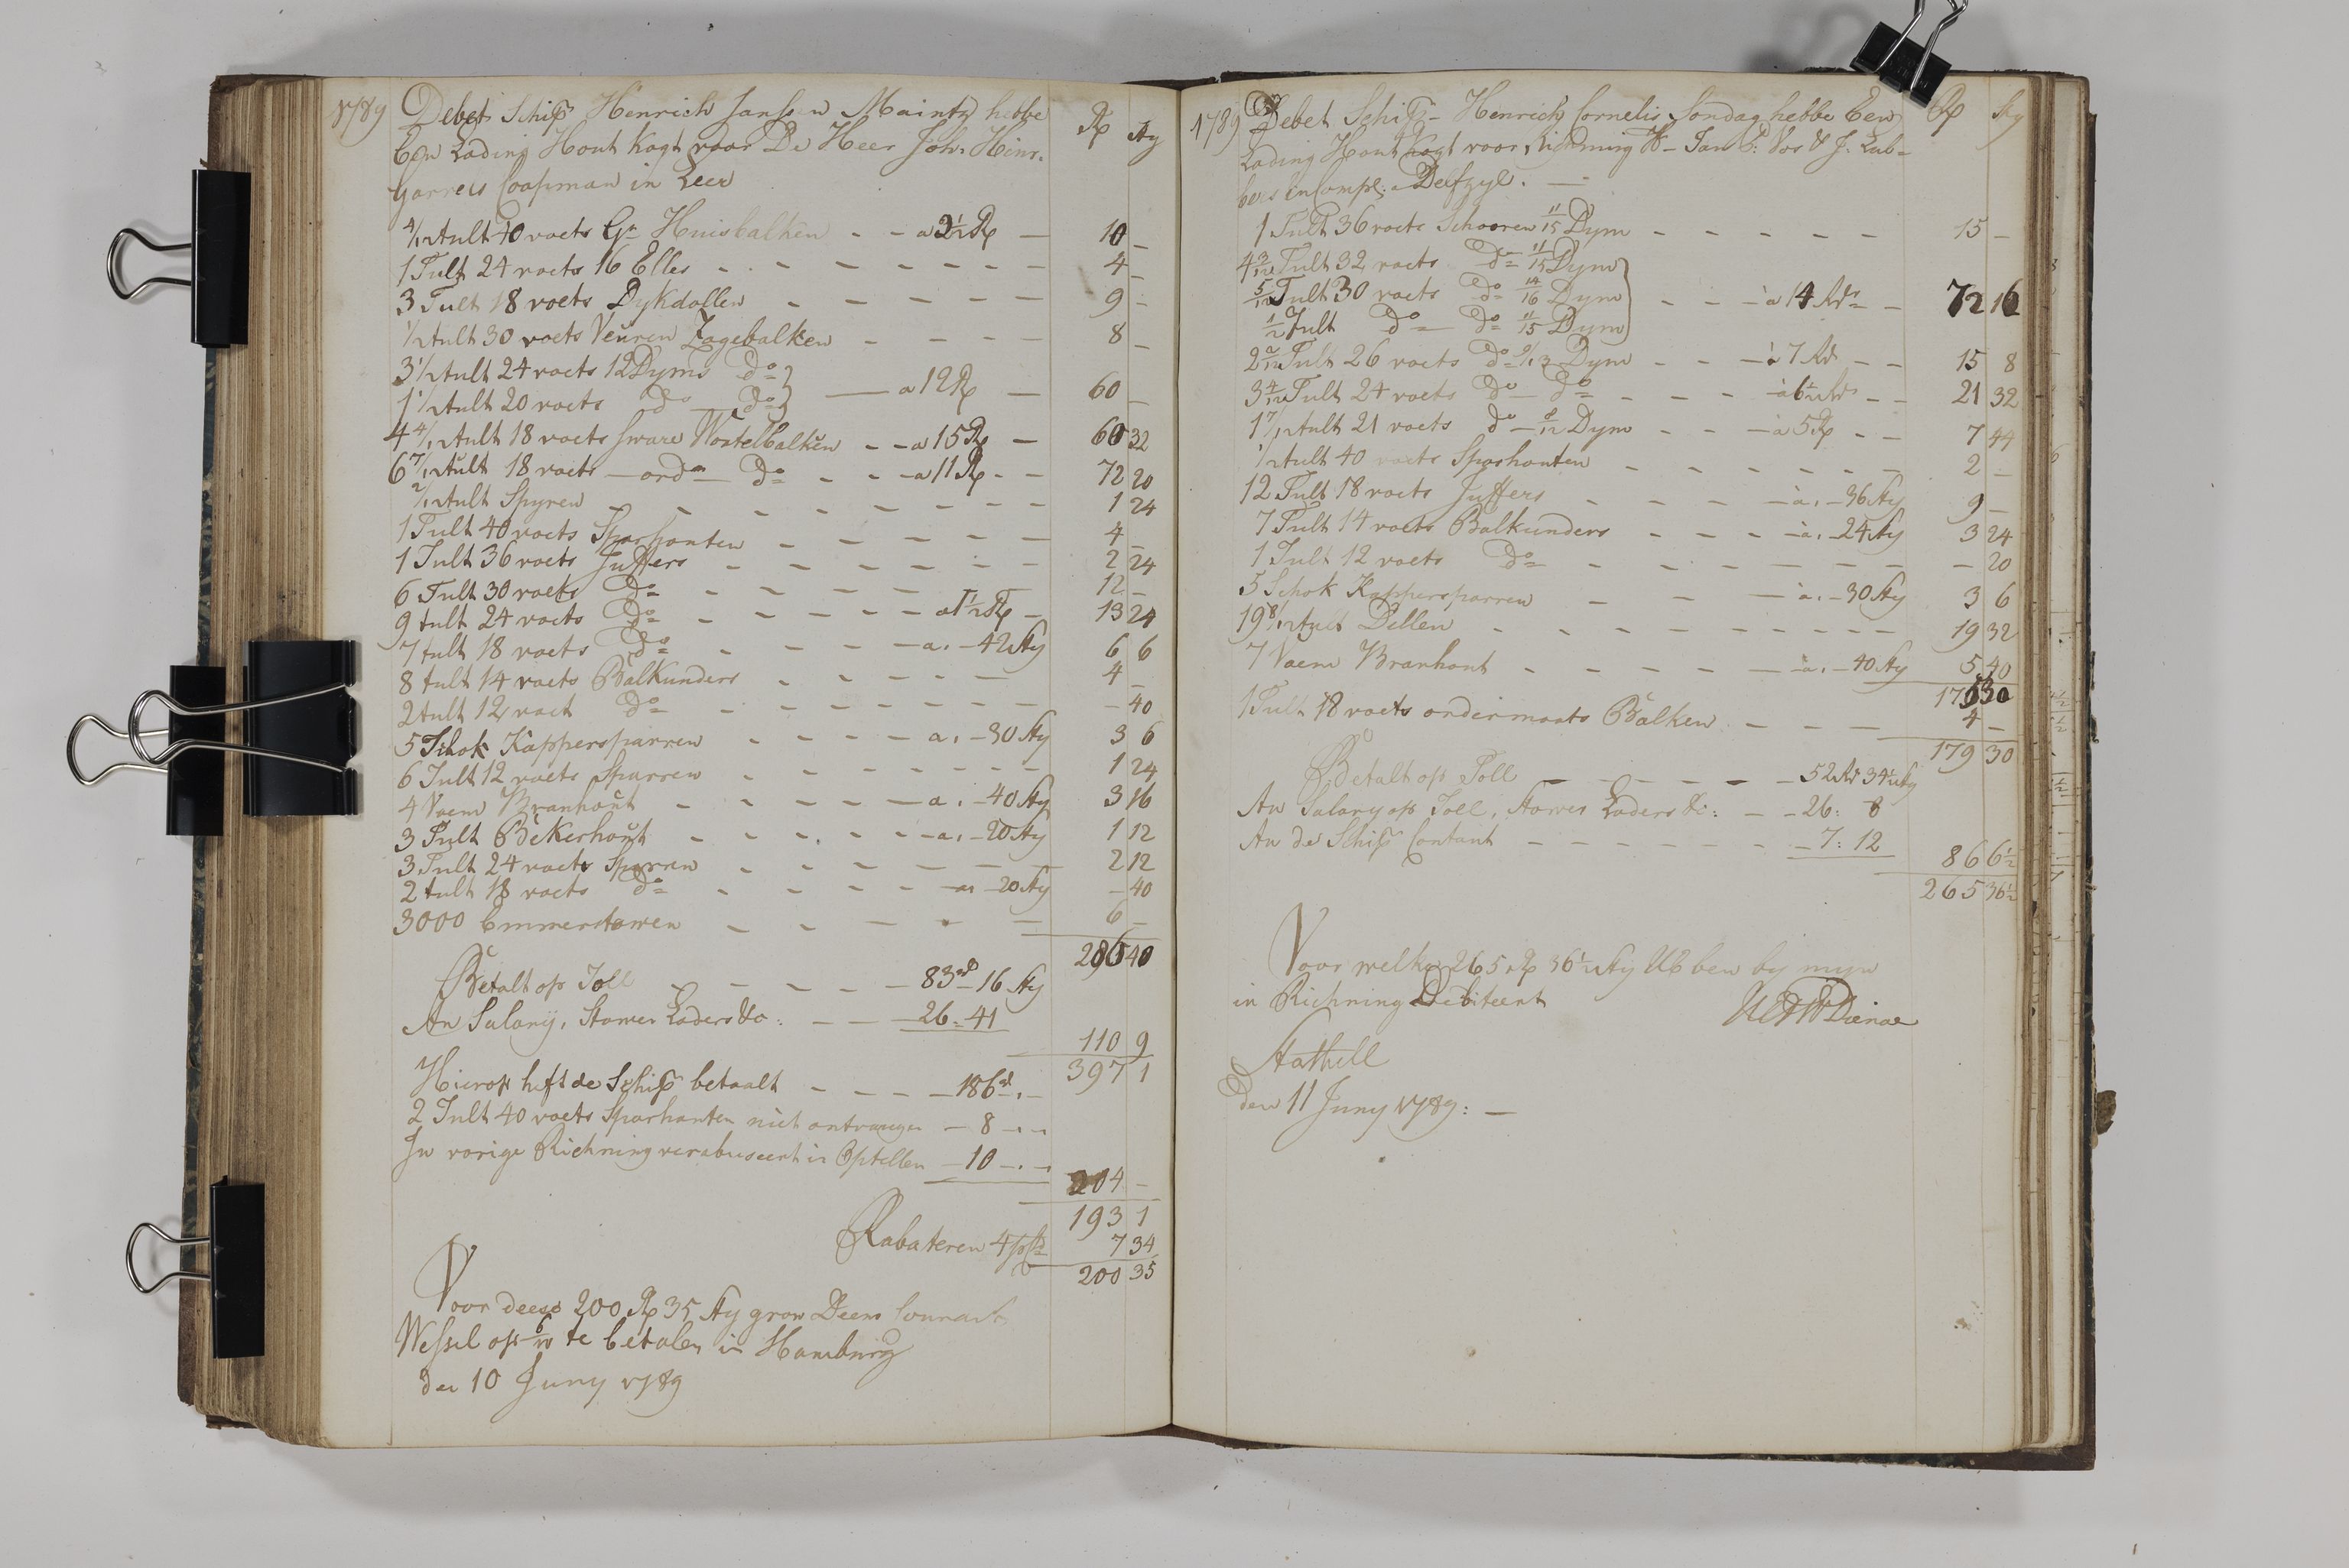 1789 Debet Schip Henrich Janssen Maintz hebbe Rd Sty
Een Lading Hout Kogt voor De Heer Joh: Hinr.
Garrels Coopman in Leer
4/12 tult 40 voets Gr Huisbalken a 2½ Rd 10 –
1 Tult 24 voets 16 Elles 4 –
3 Tult 18 voets Dykdollen 9 –
½ tult 30 voets Veuren Zagebalken 8 –
3 1/12 tult 24 voets 12 Dyms Do
1 1/12 tult 20 voets Do Do a 12 Rd 60 –
4 4/12 tult 18 voets sware Wostelbalken a 15 Rd 60 32
6 7/12 tult 18 voets ord Do a 11 Rd 72 20
2/12 tult Spyren 1 24
1 Tult 40 voets Sparhonten 4 –
1 Tult 36 voets Juffers 2 24
6 Tult 30 voets Do 12 –
9 tult 24 voets Do a 1½ Rd 13 24
7 tult 18 voets Do a. 42 Sty 6 6
8 tult 14 voets Balkunders 4 –
2 tult 12 voet Do – 40
5 Schok Kappersparren a. 30 Sty 3 6
6 Tult 12 voets Sparren 1 24
4 Vaem Branhout a. 40 Sty 3 16
3 Tult Bekerhout a. 20 Sty 1 12
3 Tult 24 voets Sparren 2 12
2 tult 18 voets Do a 20 Sty – 40
3000 Emmerstawen 6 –
286 40
Betalt op Toll 83 rd 16 Sty
An Salary, Stower Laders &c: 26 = 41
110 9
397 1
Hierop heft de Schip betaalt 186 rd
2 Tult 40 voets Sparhonten niet ontvangen 8
In vorige Richning verabuseert in Optellen 10
204 –
193 1
Rabateren 4 p Ct 7 34
200 35
Voor deese 200 Rd 35 Sty grow Deens Courant
Wessel op te betalen in Hamburg
den 10 Juny 1789
1789 Debet Schip Henrich Cornelis Sondag hebbe Een Rd Sty
Lading Hout Kogt voor Richning H Jan Vos & J. Lub=
bers En Comp: Delfzyl.
1 Tult 36 voets Schooren 11/15 Dym 15 –
4 3/12 Tult 32 voets Do 11/15 Dym
5/12 Tult 30 voets Do 14/16 Dym a 14 Rds 72 16
½ Tult Do Do 11/15 Dym
2 2/12 Tult 26 voets Do 9/13 Dym a 7 Rd 15 8
3 4/12 Tult 24 voets Do Do a 6½ Rds 21 32
1 7/12 tult 21 voets Do 8/12 Dym a 5 Rd 7 44
½ tult 40 voets Sparhonten 2 –
12 Tult 18 voets Juffers a. 36 Sty 9 –
7 Tult 14 voets Balkunders a. 24 Sty 3 24
1 Tult 12 voets Do – 20
5 Schok Kappersparren a. 30 Sty 3 6
19 8/12 tult Dellen 19 32
7 Vaem Branhout a. 40 Sty 5 40
175 30
1 Tult 18 voets ondermaats Balken 4 –
179 30
Betalt op Toll 52 Rd 34½ Sty
An Salary op Toll, Stower Laders &c: 26: 8
An de Schip Contant 7: 12
86 6½
265 36½
Voor welke 265 Rd 36½ Sty UE ben by myn
in Richning Debiteert
UEDWDienar
Stathell
den 11 Juny 1789: